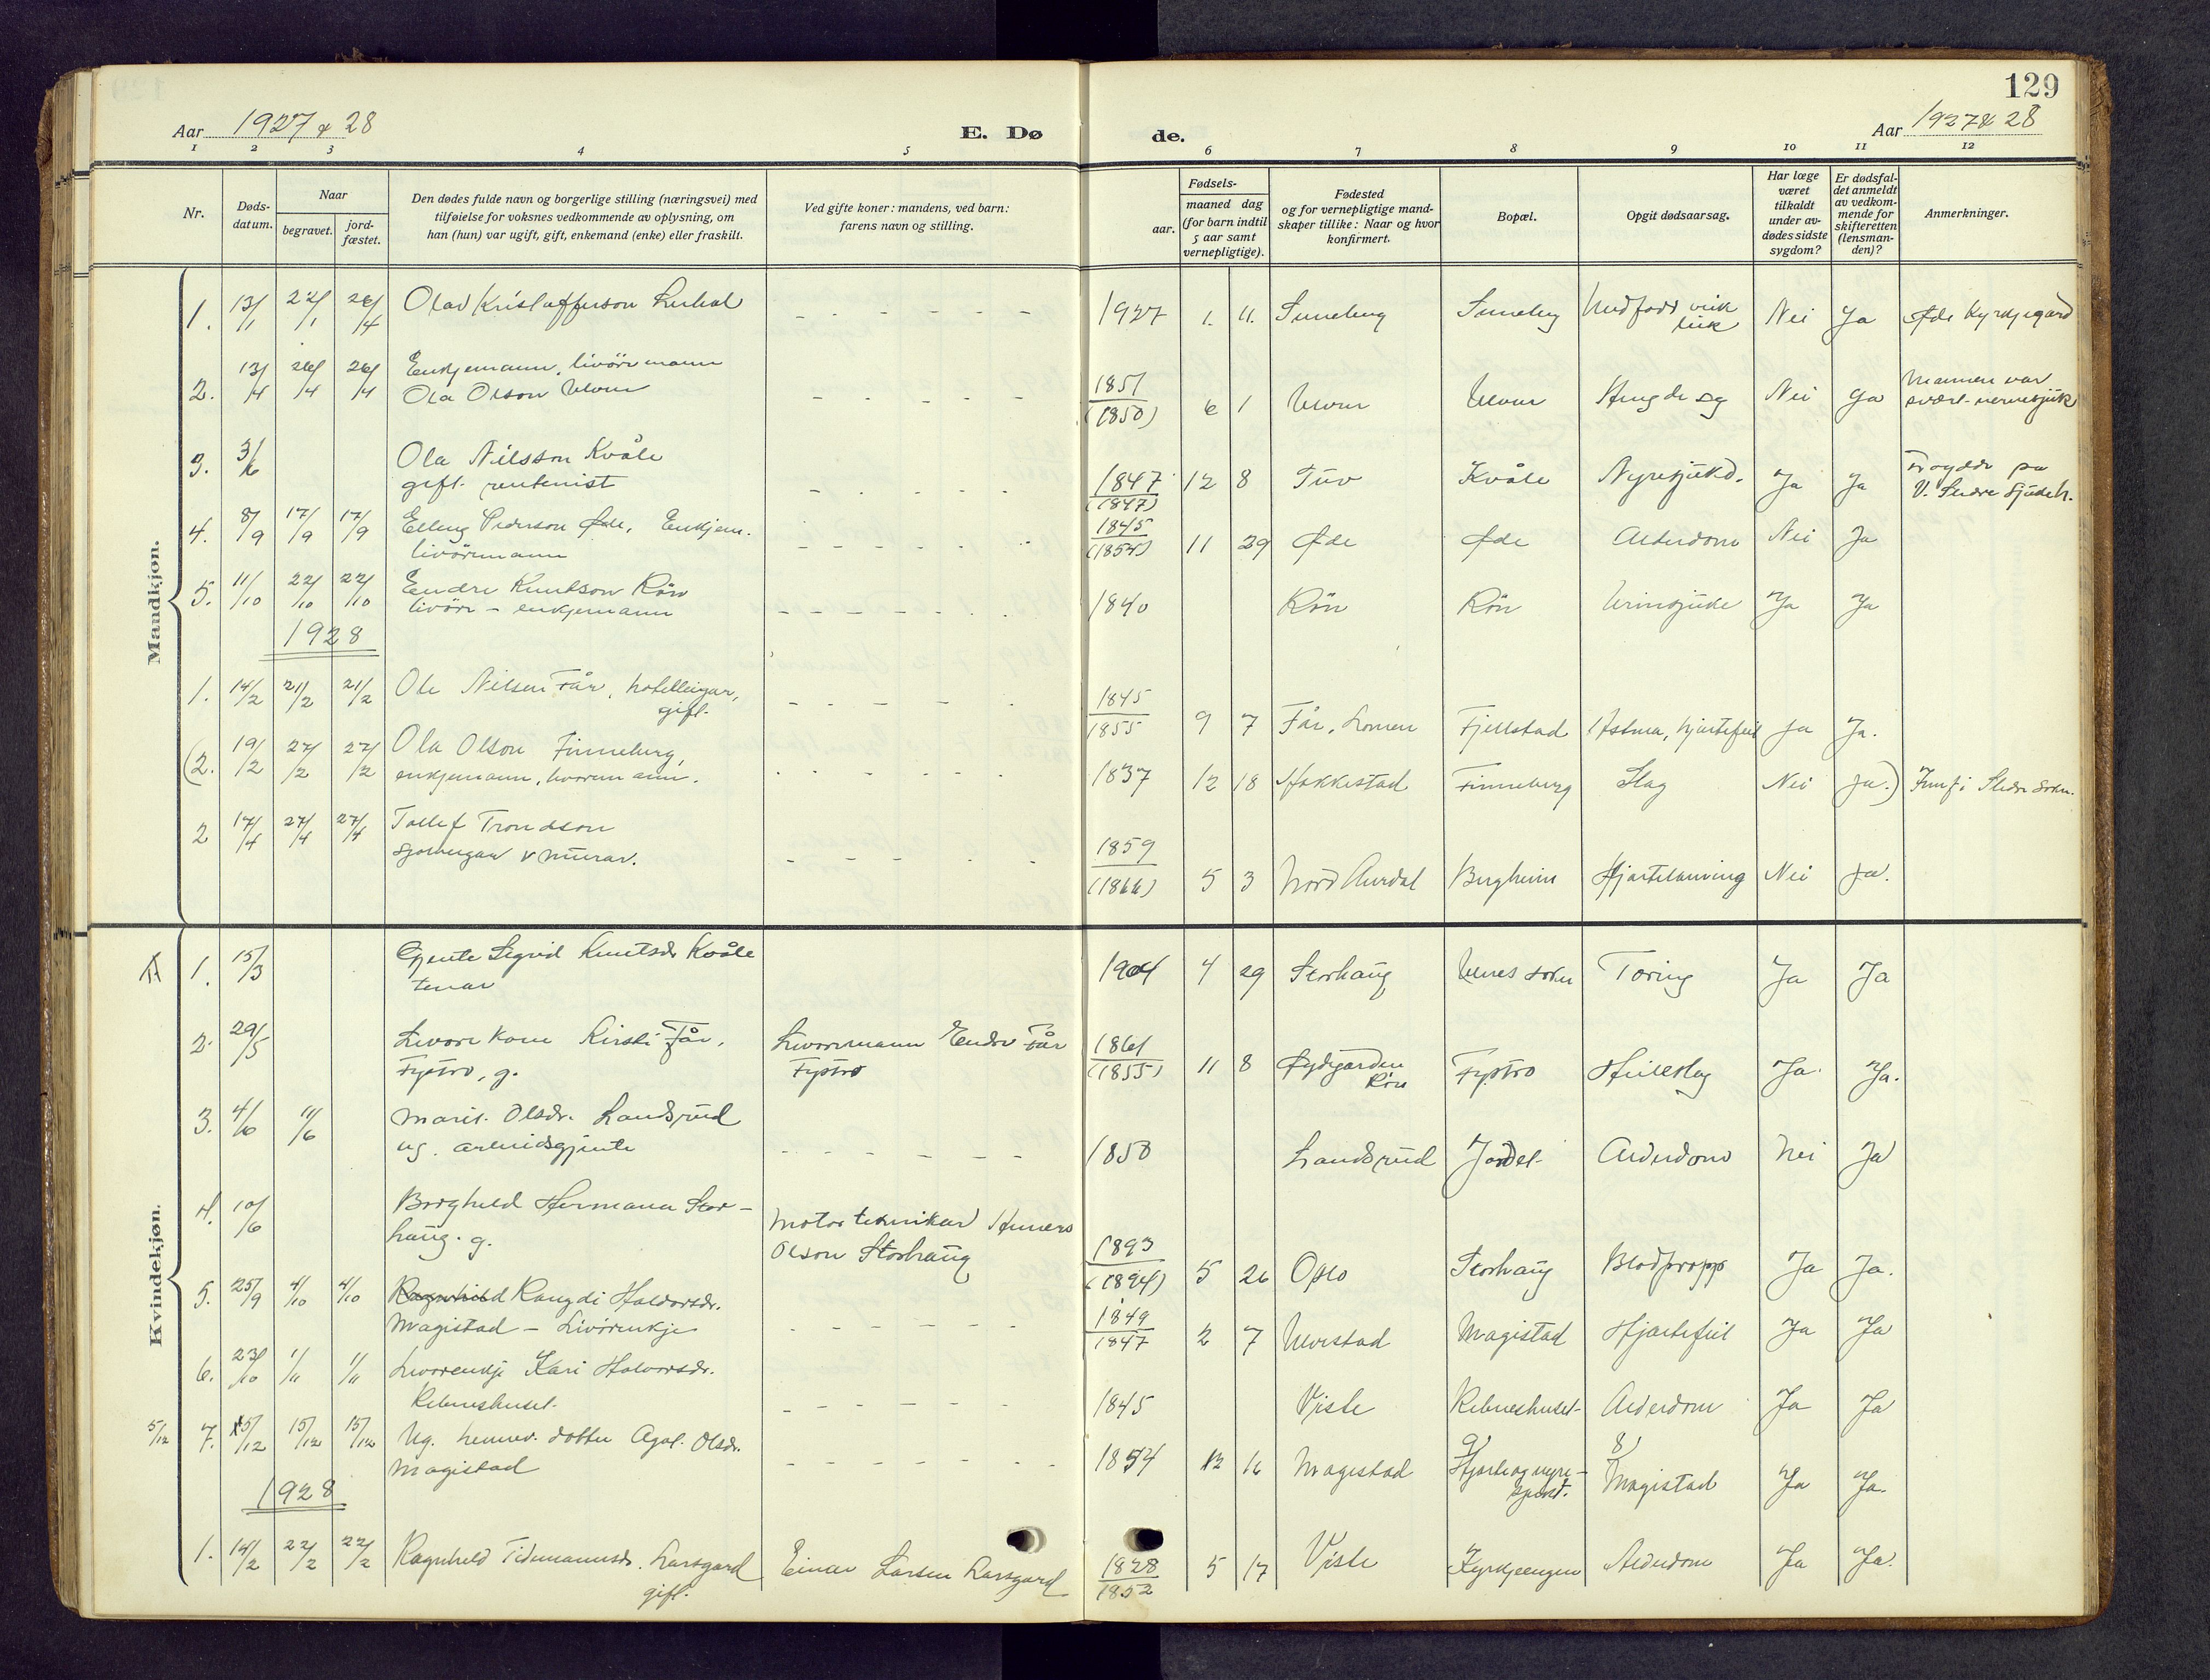 129
Aar 1927 & 28
E. Dø
de.
Aar 1927 & 28
1 2 3 4 5 6 7 8 9 10 11 12
Nr.
Døds-
datum.
Naar
begravet.
jord-
fæstet.
Den dødes fulde navn og borgerlige stilling (næringsvei) med
tilføielse for voksnes vedkommende av oplysning, om
han (hun) var ugift, gift, enkemand (enke) eller fraskilt.
Ved gifte koner: mandens, ved barn:
farens navn og stilling.
Fødsels-
aar.
maaned dag
(for barn indtil
5 aar samt
vernepligtige).
Fødested
og for vernepligtige mand-
skaper tillike: Naar og hvor
konfirmert.
Bopæl.
Opgit dødsaarsag.
Har læge
været
tilkaldt
under av-
dødes sidste
sygdom?
Er dødsfal-
det anmeldt
av vedkom-
mende for
skifteretten
(lensman-
den)?
Anmerkninger.
Mandkjøn.
1. 13/1 22/1 26/4 Olav Kristofferson 1927 1. 11. Nei Ja Øde Kyrkjegard
2. 13/4 26/4 26/4 Enkjemann, livörmann
Ola Olson 1851
(1850) 6 1 Nei Ja Mannen var
svært nervesjuk
3. 3/6 Ola Nilsson Kvåle
gift. rentenist 1847
(1847) 12 8 Tuv Kvåle Nyresjukd. Ja Ja Døydde på
V. Slidre Sjukeh.
4. 8/9 17/9 17/9 Elling Pederson Øde, Enkjem.
livörmann 1845
(1854) 11 29 Øde Øde Alderdom Nei Ja
5. 11/10 22/10 22/10 Endre Knutson Rön
livöre - enkjemann 1840 Rön Rön Urinsjuke Ja Ja
1928
1. 14/2 21/2 21/2 Ole Nilsen Får, hotelleigar,
gift. 1845
1855 9 7 Får, Lomen Fjellstad Astma, hjartefeil Ja Ja.
(2. 19/2 27/2 27/2 Ola Olson Finneberg,
enkjemann, livormann. 1837 12 18 Hakkestad Finneberg Slag Nei Ja.) Innf. i Slidre Sokn.
2 17/4 27/4 27/4 Tollef Trondson
sjølveigar v murar. 1859
(1866) 5 3 Nord Aurdal Bergheim Hjartelaming Nei Ja.
Kvindekjøn.
1. 15/3 Gjente Sigrid Knutsdr Kvåle
tenar 1904 4 29 Storhaug Ulnes sokn Tæring Ja Ja
2. 29/5 Livore kone Kirsti Får,
Fystro, g. Livormann Endre Får
Fystro 1861
(1855) 11 8 Øydgarden
Rön Fystro Heileslag Ja. Ja.
3. 4/6 11/6 Marit. Olsdr. Landsrud
ug. arbeidsgjente 1850 Landsrud Jordet Alderdom Nei Ja
4. 10/6 Borghild Hermana Stor-
haug. g. Motorteknikar
Olson Storhaug 1893
(1894) 5 26 Oslo Storhaug Blodpropp Ja Ja.
5. 25/9 4/10 4/10 Ragnhild Rangdi Haldorsdr.
Magistad - Livörenkje 1849
1847 2 7 Ulvestad Magistad Hjartefeil Ja Ja
6. 23/10 1/11 1/11 Livorenkje Kari Halvorsdr.
Rebneshuset. 1845 Viste Rebneshuset Alderdom Ja Ja
5/12 7. 5/12 15/12 15/12 Ug. heimev. dotter Agot. Olsdr.
Magistad 1854 12 16 Magistad 9) Hjarte og nyre-
sjukd. 8) Magistad Ja Ja.
1928
1. 14/2 22/2 22/2 Ragnhild Tidemannsdr. Larsgard
gift. Einar Larsen Larsgard 1828
1852 5 17 Viste Kyrkjeengen Alderdom Ja Ja.